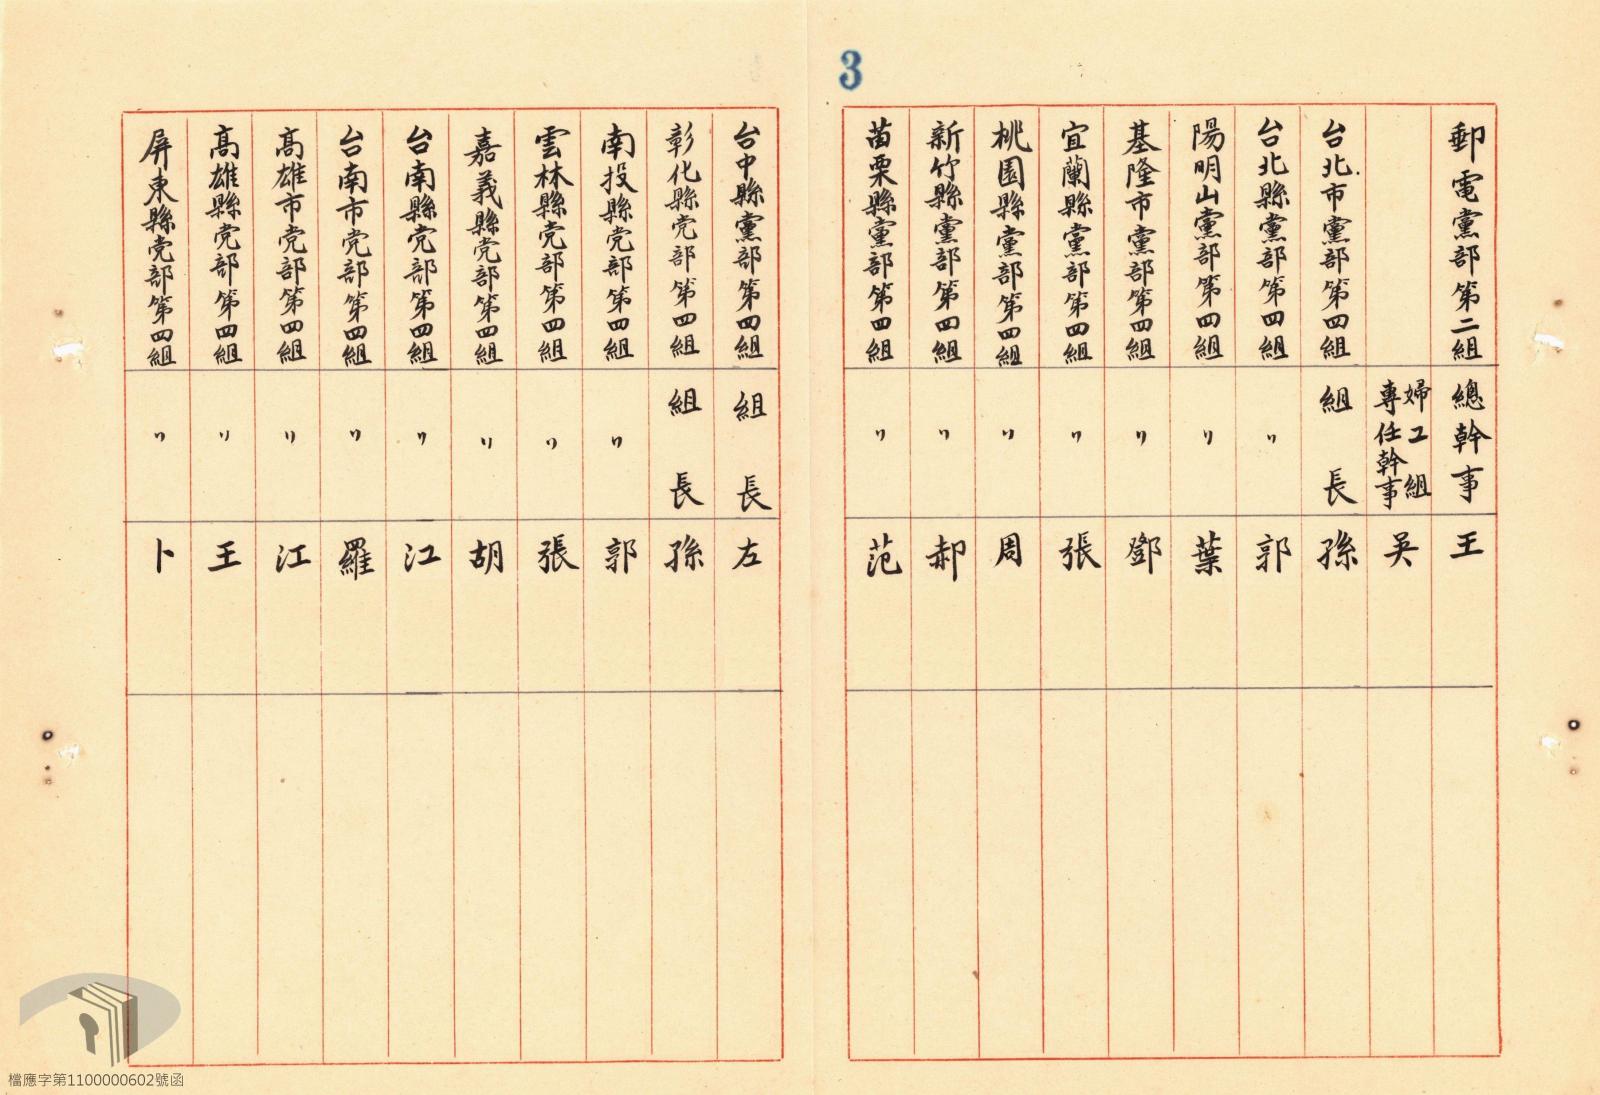 3
郵電黨部第二組 總幹事 王
婦工組專任幹事 吳
台北市黨部第四組 組長 孫
台北縣黨部第四組 〃 郭
陽明山黨部第四組 〃 葉
基隆市黨部第四組 〃 鄧
宜蘭縣黨部第四組 〃 張
桃園縣黨部第四組 〃 周
新竹縣黨部第四組 〃 郝
苗栗縣黨部第四組 〃 范
台中縣黨部第四組 組長 左
彰化縣党部第四組 組長 孫
南投縣党部第四組 〃 郭
雲林縣党部第四組 〃 張
嘉義縣党部第四組 〃 胡
台南縣党部第四組 〃 江
台南市党部第四組 〃 羅
高雄市党部第四組 〃 江
高雄縣党部第四組 〃 王
屏東縣党部第四組 〃 卜
檔應字第1100000602號函